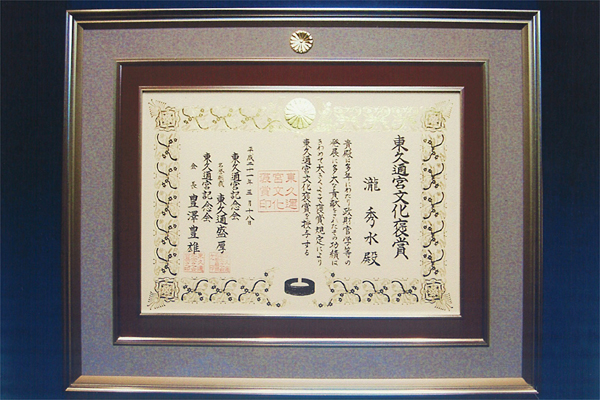 東久邇宮文化褒賞
瀧秀水殿
貴殿は多年にわたり政財官学等の
発展に多大な貢献をされたその功績は
きわめて大きくよって褒賞規定により
東久邇宮文化褒賞を授与する
平成二一年五月十八日
東久邇宮記念会
名誉総裁 東久邇盛厚
東久邇宮記念会
会長 豊澤豊雄
東久邇
宮文化
褒賞印